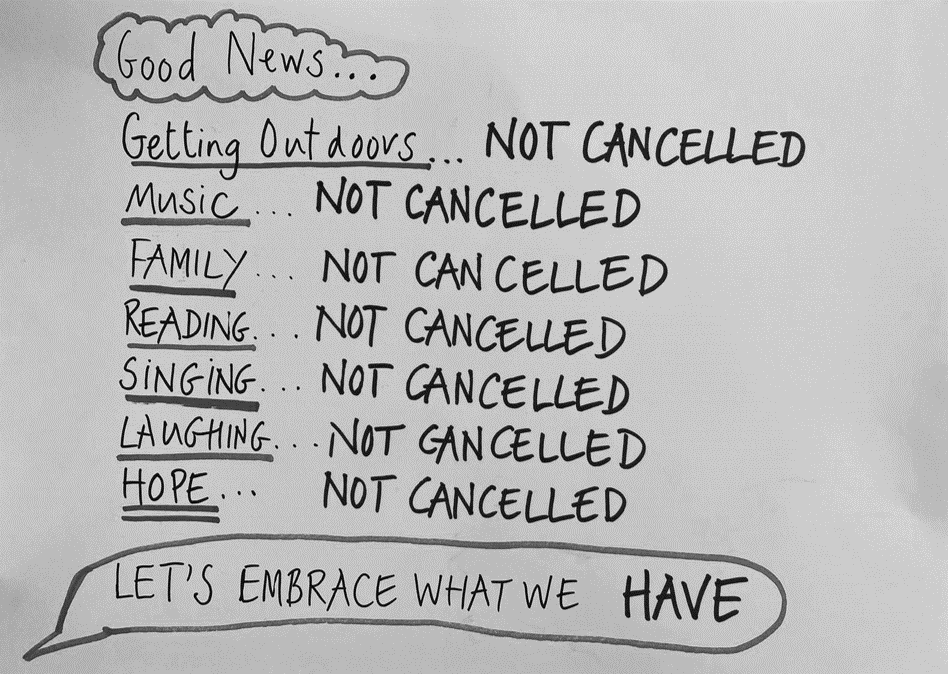 Good News...
Getting Outdoors... NOT CANCELLED
Music... NOT CANCELLED
FAMILY... NOT CANCELLED
READING... NOT CANCELLED
SiNGiNG... NOT CANCELLED
LAUGHING... NOT CANCELLED
HOPE... NOT CANCELLED
LET'S EMBRACE WHAT WE HAVE